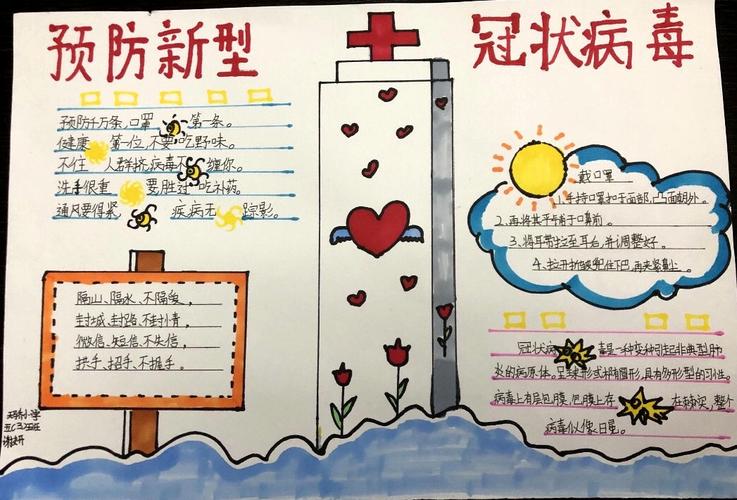 预防新型
冠状病毒
预防千万条,口罩第一条。
健康第一位,不要吃野味。
不往人群挤,病毒不缠你。
洗手很重要,胜过吃补药。
通风要得紧,疾病无踪影。
隔山、隔水、不隔爱,
封城、封路、不封情,
微信、短信、不失信,
拱手、招手、不握手。
戴口罩
1.手持口罩扣于面部,凸面朝外。
2.再将其平铺于口鼻前。
3、将耳带拉至耳后,并调整好。
4、拉开折皱兜住下巴,再夹紧鼻尖。
冠状病毒是一种变种引起非典型肺
炎的病原体。呈球形或椭圆形,具有多形型的习性。
病毒上有层包膜,包膜上存在棘突,整个
病毒似像日冕。
小学
五(3)班